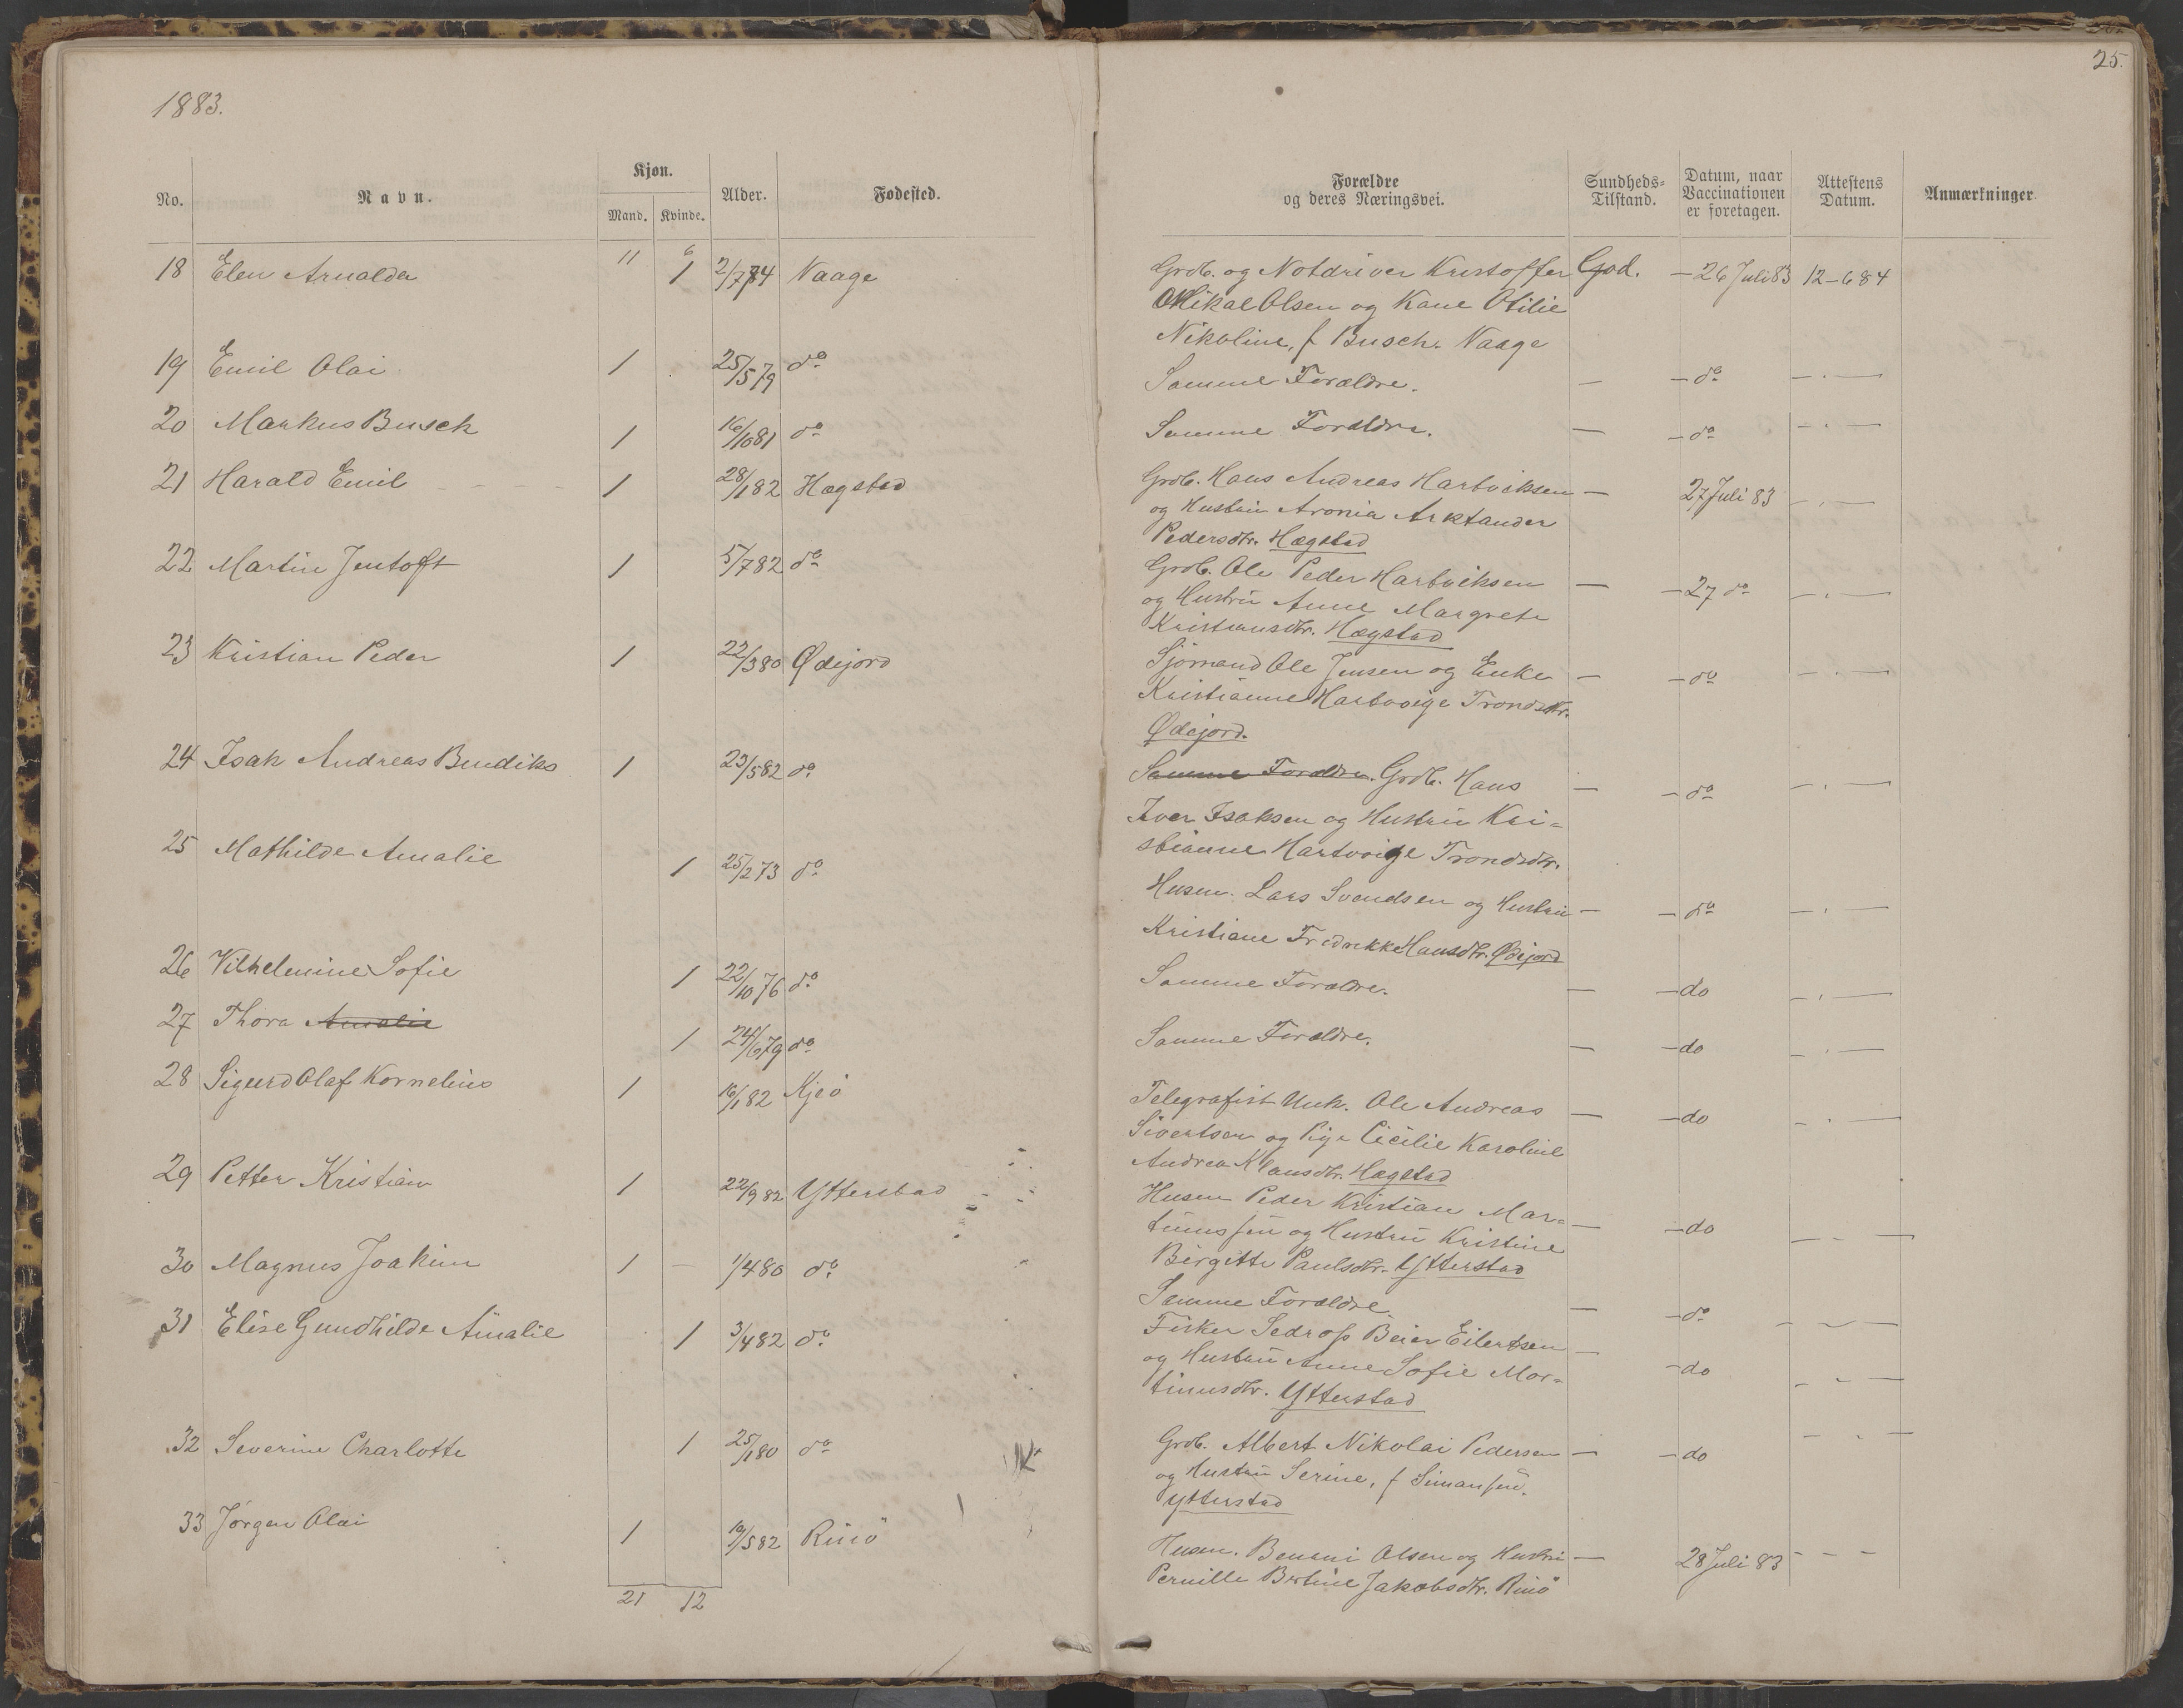 25.
1883.
No. Navn. Kjøn. Mand. Kvinde. Alder. Fødested.
Forældre og deres Næringsvei. Sundheds-Tilstand. Datum, naar Vaccinationen er foretagen. Attestens Datum. Anmærkninger.
11 6
18 Elen Arnalda 1 2/7 74 Vaage
Grdb. og Notdriver Kristoffer God. — 26 Juli 83 12-6 84
Mikal Olsen og Kone Otilie
Nikoline, f Busch. Vaage
19 Emil Olai 1 25/5 79 do
Samme Forældre. — — do — . —
20 Markus Busch 1 16/10 81 do
Samme Forældre. — — do — . —
21 Harald Emil 1 28/1 82 Hægstad
Grdb. Hans Andreas Hartviksen — 27 Juli 83 — . —
og Hustru Aronia Arktander
Pedersdtr. Hægstad
22 Martin Jentoft 1 5/7 82 do
Grdb. Ole Peder Hartviksen — — 27 do — . —
og Hustru Anne Margrete
Kristiansdtr. Hægstad
23 Kristian Peder 1 22/3 80 Ødejord
Sjømand Ole Jensen og Enke — — do — . —
Kristianne Hartvige Trondsdtr.
Ødejord.
24 Isak Andreas Bendiks 1 23/5 82 do
Samme Forældre. Grdb. Hans — — do — . —
Iver Isaksen og Hustru Kri-
stianne Hartvige Trondsdtr.
25 Mathilde Amalie 1 25/2 73 do
Husm. Lars Svendsen og Hustru — — do — . —
Kristiane Fredrikke Hansdtr. Ødejord
26 Vilhelmine Sofie 1 22/10 76 do
Samme Forældre. — — do — . —
27 Thora Amalie 1 24/6 79 do
Samme Forældre. — — do — . —
28 Sigurd Olaf Kornelius 1 16/1 82 Kjeø
Telegrafist Unk. Ole Andreas — — do — . —
Sivertsen og Pige Cicilie Karoline
Andrea Klausdtr. Hægstad
29 Petter Kristian 1 22/9 82 Ytterstad
Husm Peder Kristian Mar- — — do — - —
tinussen og Hustru Kristine
Birgitte Paulsdtr. Ytterstad
30 Magnus Joakim 1 — 1/4 80 do
Samme Forældre — — do — - —
31 Elise Gundhilde Amalie 1 3/4 82 do
Fisker Sedroß Beier Eilertsen — — do — - —
og Hustru Anne Sofie Mar-
tinusdtr. Ytterstad
32 Severine Charlotte 1 25/1 80 do
Grdb. Albert Nikolai Pedersen — — do — - —
og Hustru Serine, f Simonsen.
Ytterstad
33 Jørgen Olai 1 19/5 82 Rinø
Husm. Benoni Olsen og Hustru — 28 Juli 83 - - -
Pernille Bertine Jakobsdtr. Rinø
21 12